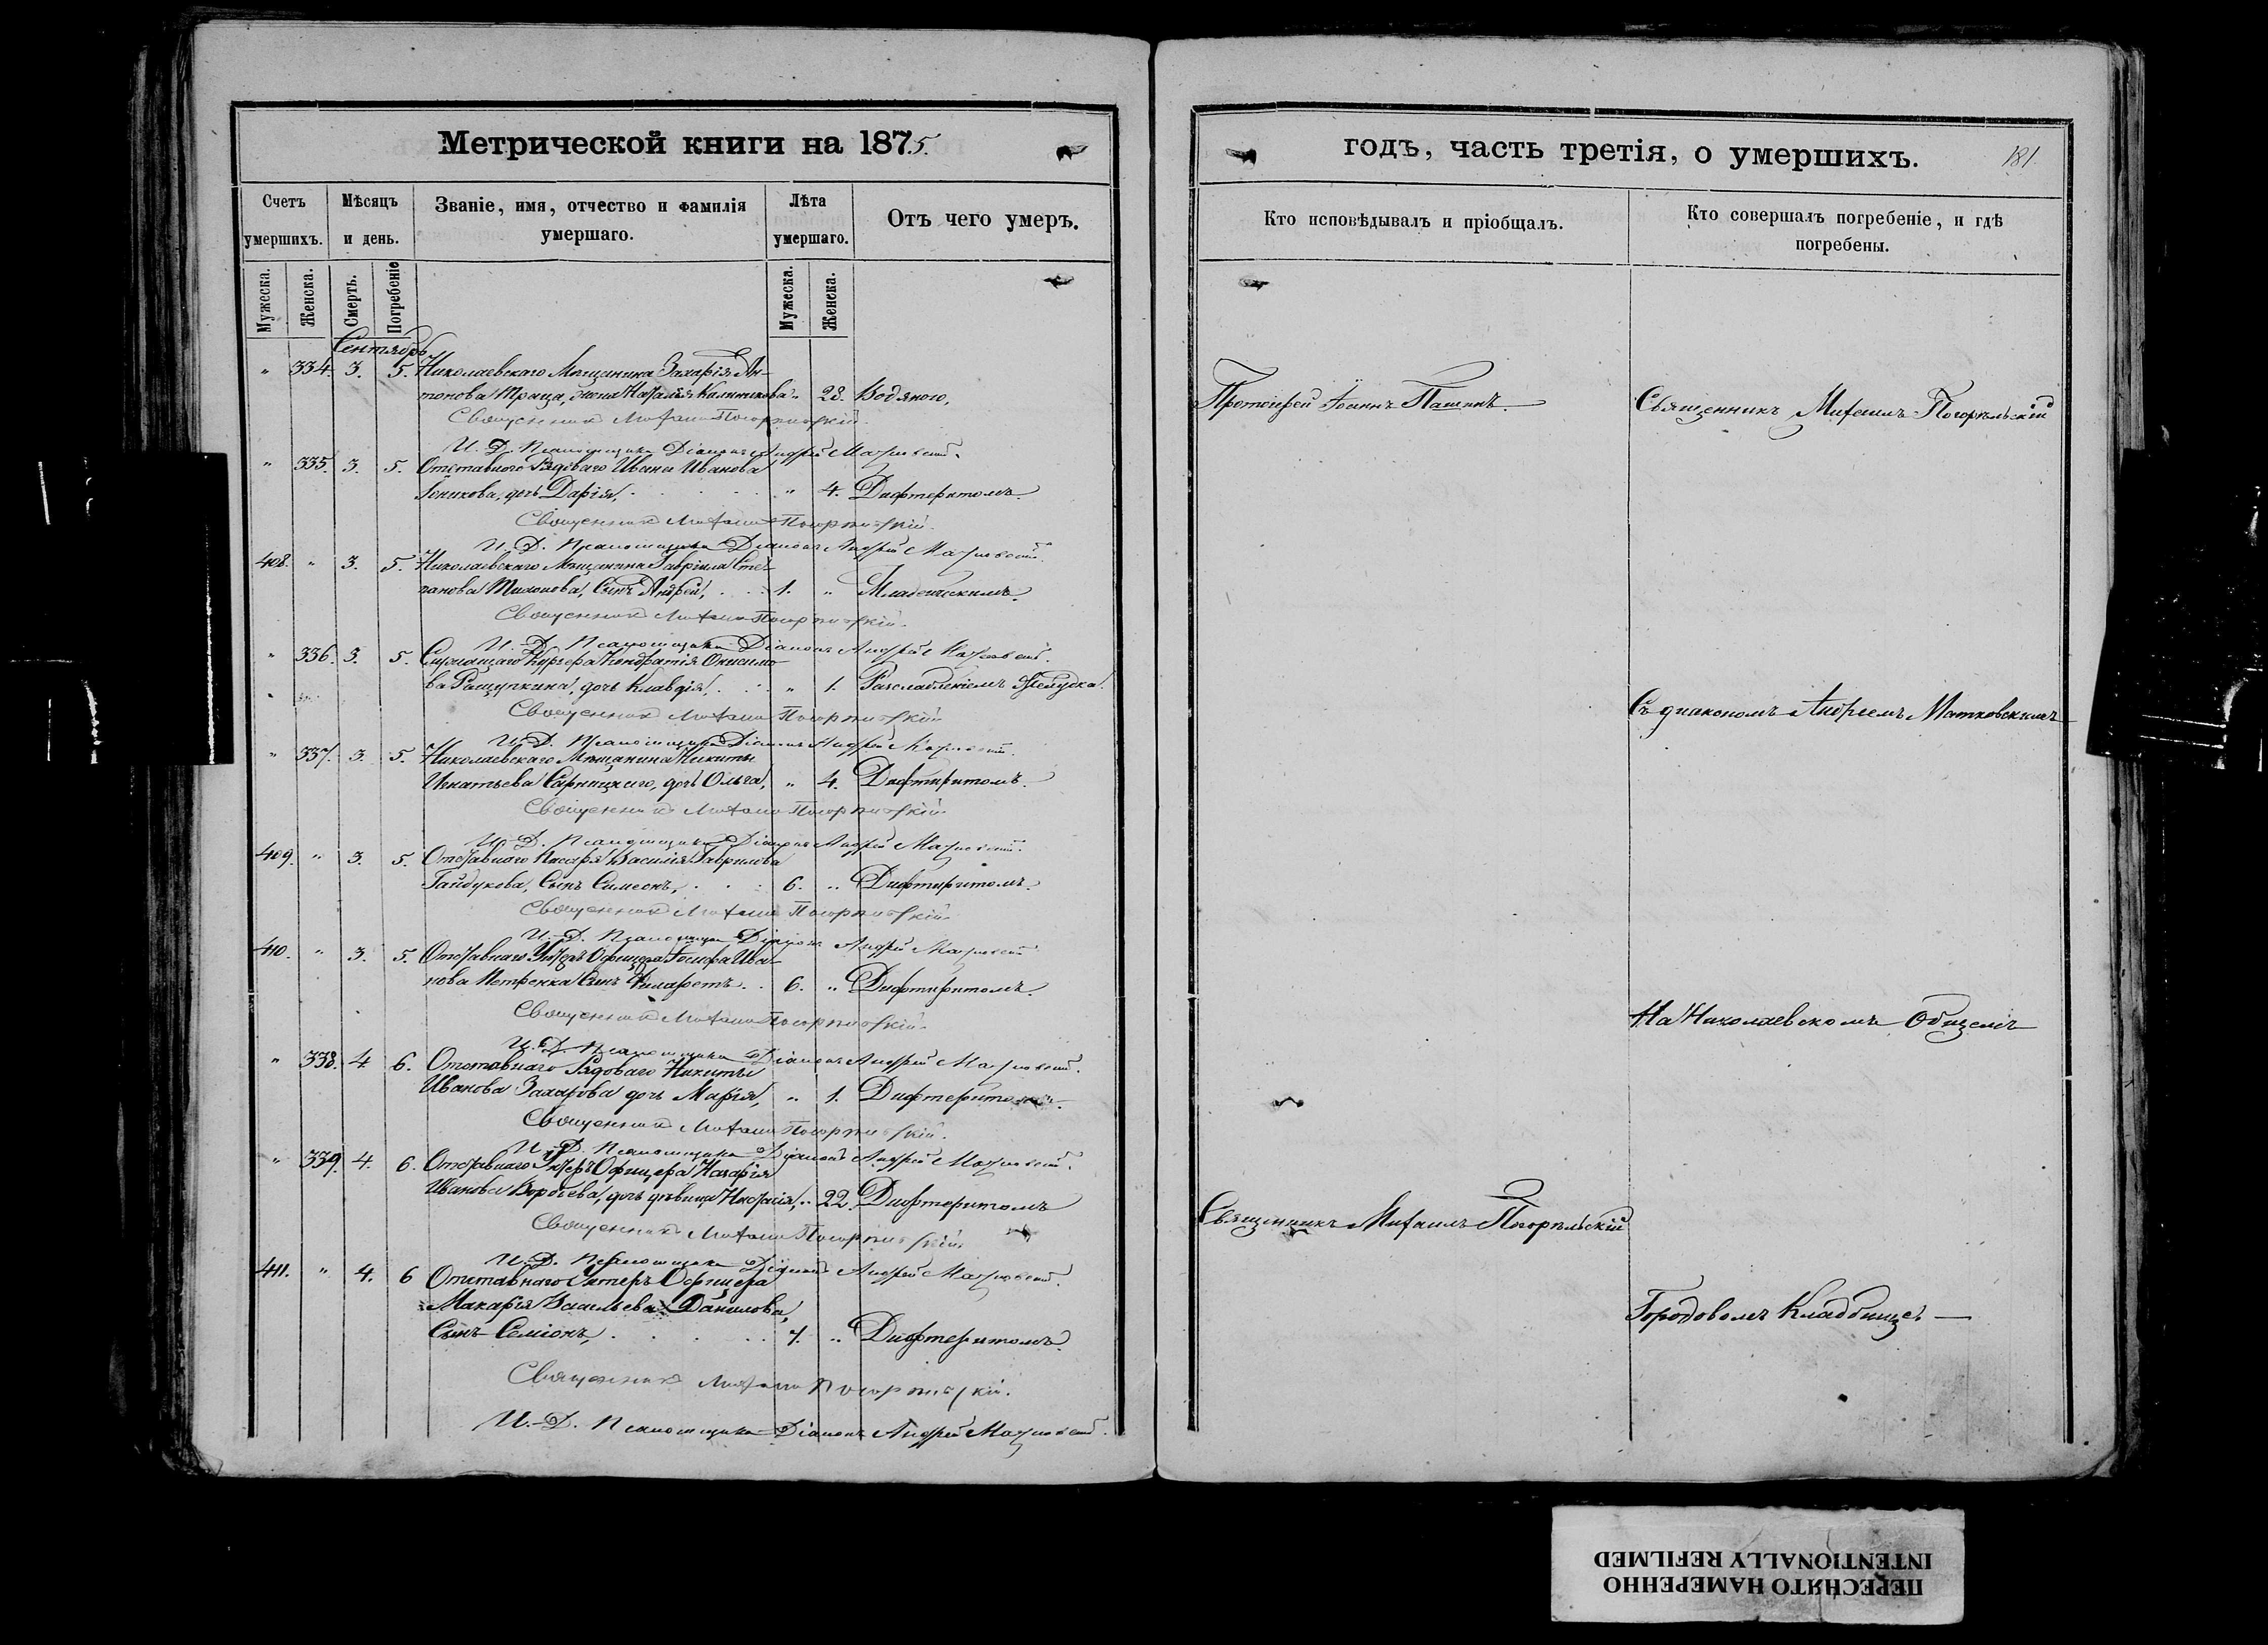 Метрической книги на 1875.
Счетъ умершихъ.
Мѣсяцъ и день.
Званіе, имя, отчество и фамилія умершаго.
Лѣта умершаго.
Отъ чего умеръ.
Мужеска.
Женска.
Смерть.
Погребеніе
Мужеска.
Женска.
Сентябрь
" 334. 3. 5. Николаевскаго Мѣщанина Захарія Ан-
тонова Траца, жена Наталія Калиникова " 28. Водяною,
Священникъ Михаилъ Погорѣльскій
И. Д. Псаломщика Діаконъ Андрей Матковскій.
" 335. 3. 5. Отставного Рядоваго Ивана Иванова
дочь Дарія, " 4. Дифтеритомъ.
Священникъ Михаилъ Погорѣльскій.
И. Д. Псаломщика Діаконъ Андрей Матковскій.
408. " 3. 5. Николаевскаго Мѣщанина Гавріила Сте-
панова Тихонова, Сынъ Андрей, 1. " Младенческимъ.
Священникъ Михаилъ Погорѣльскій.
И. Д. Псаломщика Діаконъ Андрей Матковскій.
" 336. 3. 5. Служащаго Курьера Кондратія Онисимо-
ва Ращупкина, дочь Клавдія, " 1. Разслабленіемъ Желудка.
Священникъ Михаилъ Погорѣльскій
И. Д. Псаломщика Діаконъ Андрей Матковскій.
" 337. 3. 5. Николаевскаго Мѣщанина Никиты
Игнатьева Сарницкаго, дочь Ольга, " 4. Дифтеритомъ.
Священникъ Михаилъ Погорѣльскій
И. Д. Псаломщика Діаконъ Андрей Матковскій.
409. " 3. 5. Отставного Писаря Василія Гаврилова
Гайдукова, Сынъ Симеонъ, 6. " Дифтеритомъ.
Священникъ Михаилъ Погорѣльскій
И. Д. Псаломщика Діаконъ Андрей Матковскій
410. " 3. 5. Отставнаго Унтеръ Офицера Іосифа Ива-
нова Петренка Сынъ Филаретъ. 6. " Дифтеритомъ.
Священникъ Михаилъ Погорѣльскій
И. Д. Псаломщика Діаконъ Андрей Матковскій.
" 338. 4 6. Отставнаго Рядоваго Никиты
Иванова Захарова дочь Марія, " 1. Дифтеритомъ.
Священникъ Михаилъ Погорѣльскій.
И. Д. Псаломщика Діаконъ Андрей Матковскій.
" 339. 4. 6. Отставнаго Унтеръ Офицера Назарія
Иванова Воробьева, дочь дѣвица Настасія, " 22. Дифтеритомъ
Священникъ Михаилъ Погорѣльскій.
И. Д. Псаломщика Діаконъ Андрей Матковскій.
411. " 4. 6 Отставнаго Унтеръ Офицера
Макарія Васильева Данилова,
Сынъ Семіонъ, 7. " Дифтеритомъ.
Священникъ Михаилъ Погорѣльскій.
И. Д. Псаломщика Діаконъ Андрей Матковскій.
годъ, часть третія, о умершихъ.
181.
Кто исповѣдывалъ и пріобщалъ.
Кто совершалъ погребеніе, и гдѣ
погребены.
Протоіерей Іоаннъ Пашинъ.
Священникъ Михаилъ Погорѣльскій
Съ діакономъ Андреемъ Матковскимъ
На Николаевскомъ Общемъ
Священникъ Михаилъ Погорѣльскій
Городовомъ Кладбищѣ —
ПЕРЕСНЯТО НАМЕРЕННО
INTENTIONALLY REFILMED